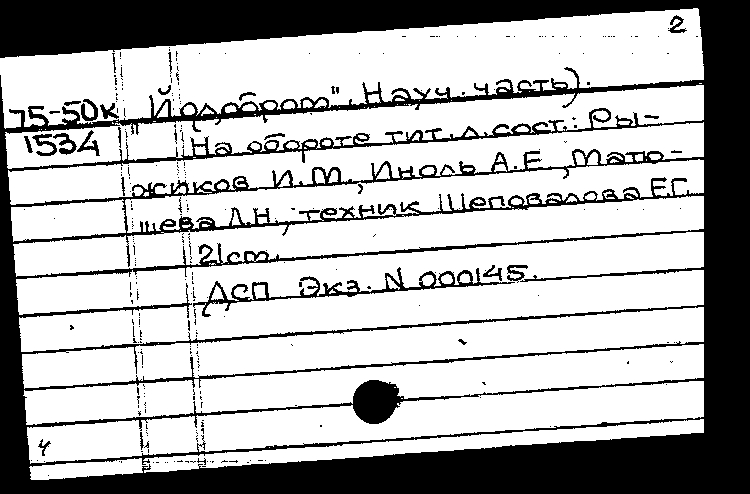 2
75-50к "Йодобром". Науч. часть).
1534 На обороте тит. л. сост.: Ры-
жиков И.М., Иноль А.Е., Матю-
шева Л.Н., техник Шеповалова Е.Г.
21 cm.
ДСП Экз. N 000145.
4